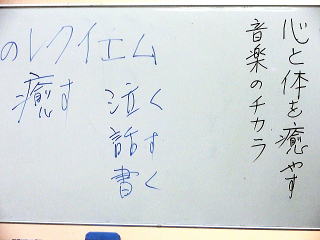 心と体を癒やす
音楽のチカラ
のレクイエム
癒す 泣く
話す
書く